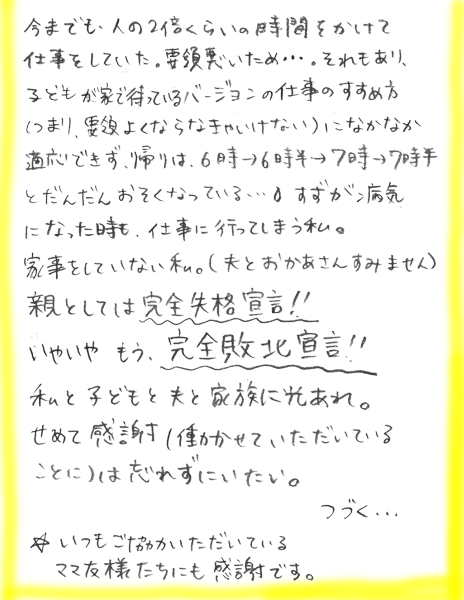 今までも、人の2倍くらいの時間をかけて
仕事をしていた。要領悪いため…。それもあり、
子どもが家で待っているバージョンの仕事のすすめ方
(つまり、要領よくならなきゃいけない)になかなか
適応できず、帰りは、6時→6時半→7時→7時半
とだんだんおそくなっている…。すずが病気
になった時も、仕事に行ってしまう私。
家事をしていない私。(夫とおかあさんすみません)
親としては完全失格宣言!!
いやいや もう、完全敗北宣言!!
私と子どもと夫と家族に光あれ。
せめて感謝(働かせていただいている
ことに)は忘れずにいたい。
つづく…
☆いつもご協力いただいている
ママ友様たちにも感謝です。